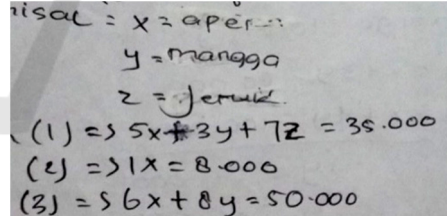 misal = x = apel
y = mangga
z = Jeruk.
(1) => 5x+3y+7z = 35.000
(2) => 1x = 8.000
(3) => 6x+8y = 50.000